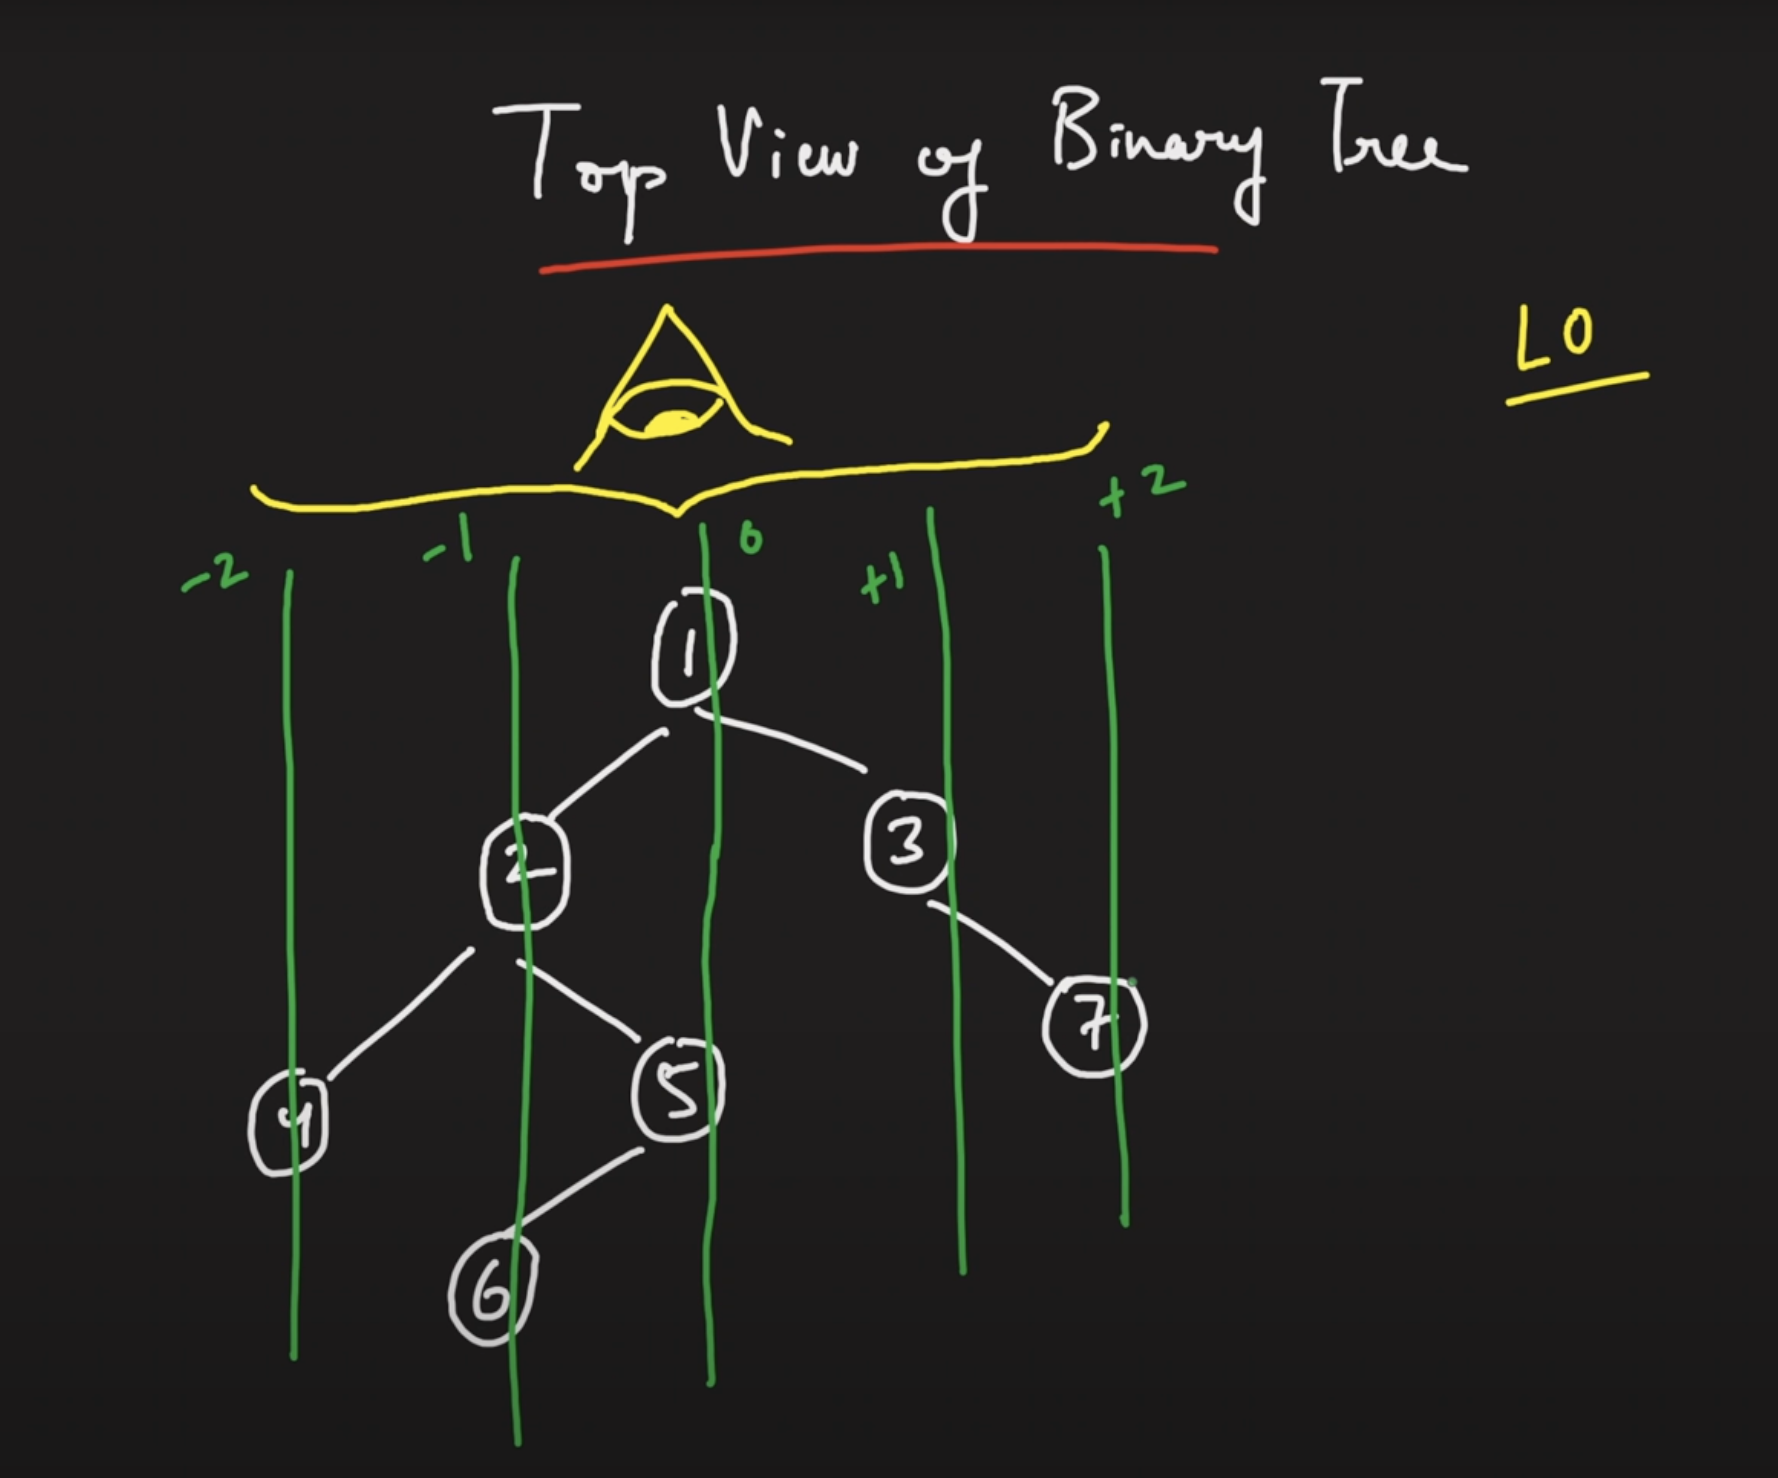 Top View of Binary Tree
LO
-2 -1 0 +1 +2
1
2 3
4 5 7
6